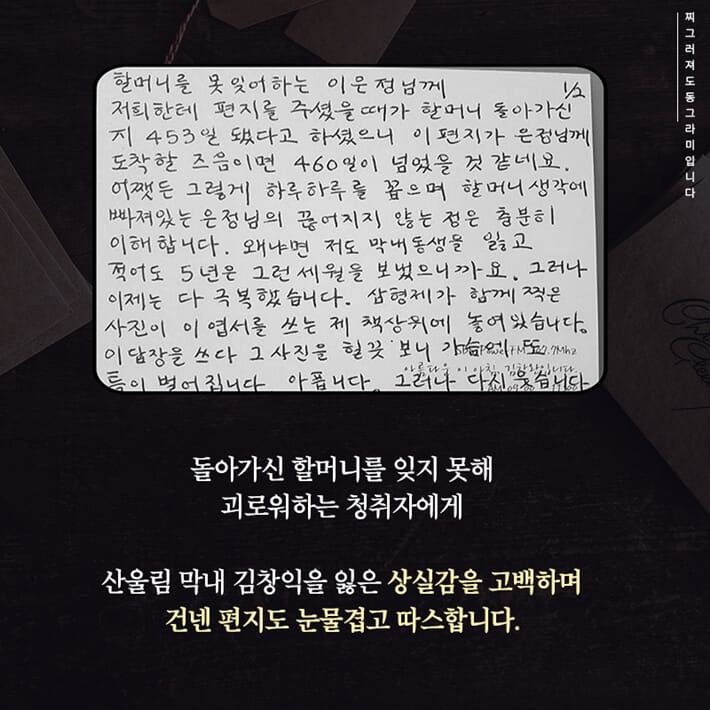 찌그러져도동그라미입니다
할머니를 못잊어하는 이은정님께 1/2
저희한테 편지를 주셨을때가 할머니 돌아가신
지 453일 됐다고 하셨으니 이편지가 은정님께
도착할 즈음이면 460일이 넘었을 것 같네요.
어쨌든 그렇게 하루하루를 꼽으며 할머니생각에
빠져있는 은정님의 끊어지지 않는 정은 충분히
이해합니다. 왜냐면 저도 막내동생을 잃고
적어도 5년은 그런세월을 보냈으니까요. 그러나
이제는 다 극복했습니다. 삼형제가 함께 찍은
사진이 이엽서를 쓰는 제 책상위에 놓여있습니다.
이답장을 쓰다 그사진을 힐끗 보니 가슴에 또
틈이 벌어집니다 아픕니다. 그러나 다시 웃습니다
아름다운 이 아침 김창완입니다
돌아가신 할머니를 잊지 못해
괴로워하는 청취자에게
산울림 막내 김창익을 잃은 상실감을 고백하며
건넨 편지도 눈물겹고 따스합니다.